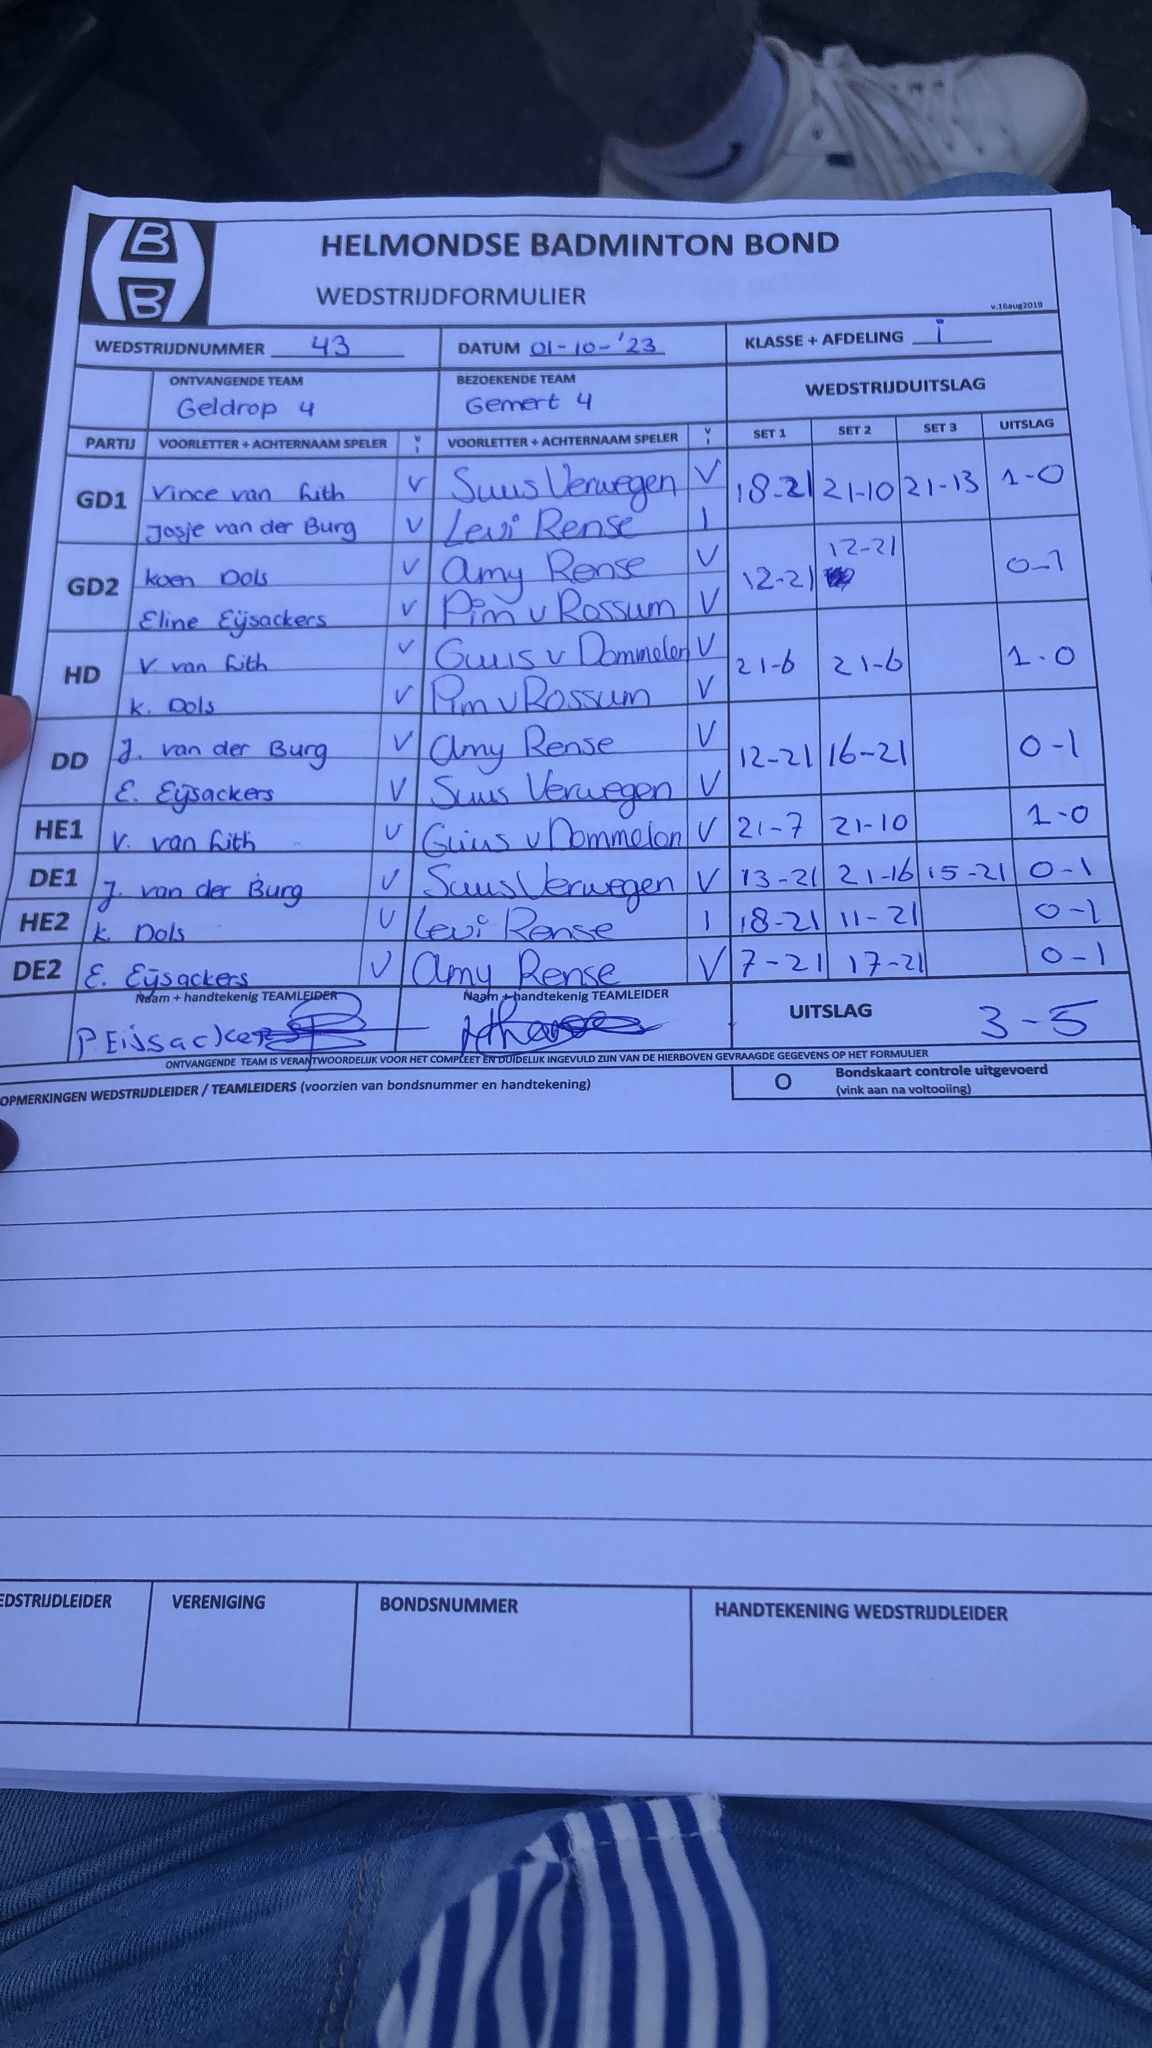 B
B
HELMONDSE BADMINTON BOND
WEDSTRIJDFORMULIER
v.16aug2019
WEDSTRIJDNUMMER 43 DATUM 01-10-'23 KLASSE + AFDELING i
ONTVANGENDE TEAM BEZOEKENDE TEAM WEDSTRIJDUITSLAG
Geldrop 4 Gemert 4
PARTIJ VOORLETTER + ACHTERNAAM SPELER V I VOORLETTER + ACHTERNAAM SPELER V I SET 1 SET 2 SET 3 UITSLAG
GD1 Vince van Lith V Suus Verwegen V 18-21 21-10 21-13 1-0
Josje van der Burg V Levi Rense I
GD2 Koen Dols V Amy Rense V 12-21 12-21 0-1
Eline Eijsackers V Pim v Rossum V
HD V. van Lith V Guus v Dommelen V 21-6 21-6 1-0
K. Dols V Pim v Rossum V
DD J. van der Burg V Amy Rense V 12-21 16-21 0-1
E. Eijsackers V Suus Verwegen V
HE1 V. van Lith V Guus v Dommelen V 21-7 21-10 1-0
DE1 J. van der Burg V Suus Verwegen V 13-21 21-16 15-21 0-1
HE2 K. Dols V Levi Rense I 18-21 11-21 0-1
DE2 E. Eijsackers V Amy Rense V 7-21 17-21 0-1
Naam + handtekenig TEAMLEIDER Naam + handtekenig TEAMLEIDER UITSLAG 3-5
P Eijsackers
ONTVANGENDE TEAM IS VERANTWOORDELIJK VOOR HET COMPLEET EN DUIDELIJK INGEVULD ZIJN VAN DE HIERBOVEN GEVRAAGDE GEGEVENS OP HET FORMULIER
OPMERKINGEN WEDSTRIJDLEIDER / TEAMLEIDERS (voorzien van bondsnummer en handtekening) O Bondskaart controle uitgevoerd
(vink aan na voltooiing)
EDSTRIJDLEIDER VERENIGING BONDSNUMMER HANDTEKENING WEDSTRIJDLEIDER